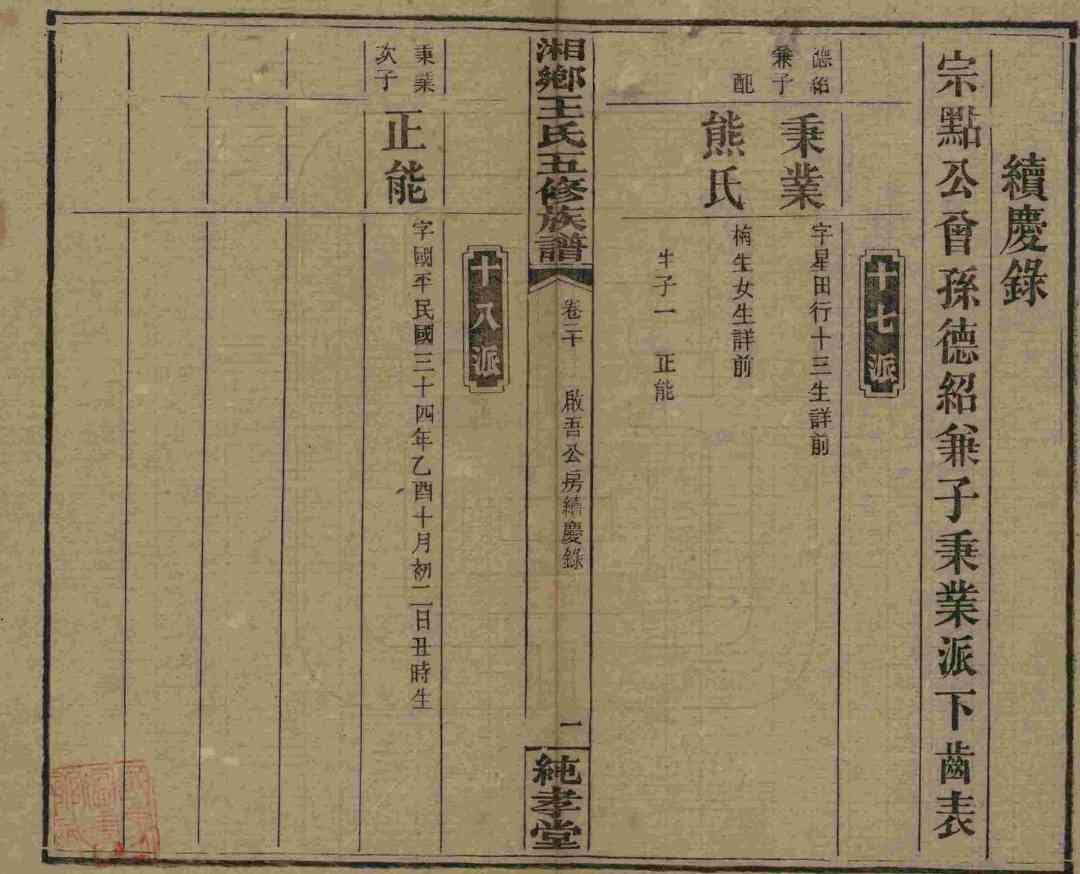 續慶錄
宗點公曾孫德紹兼子秉業派下齒表
十七派
德紹
兼子
秉業
字星田行十三生詳前
配
熊氏
楠生女生詳前
生子一 正能
湘鄉王氏五修族譜
卷二十 啟吾公房續慶錄
一
純孝堂
十八派
秉業
次子
正能
字國平民國三十四年乙酉十月初二日丑時生